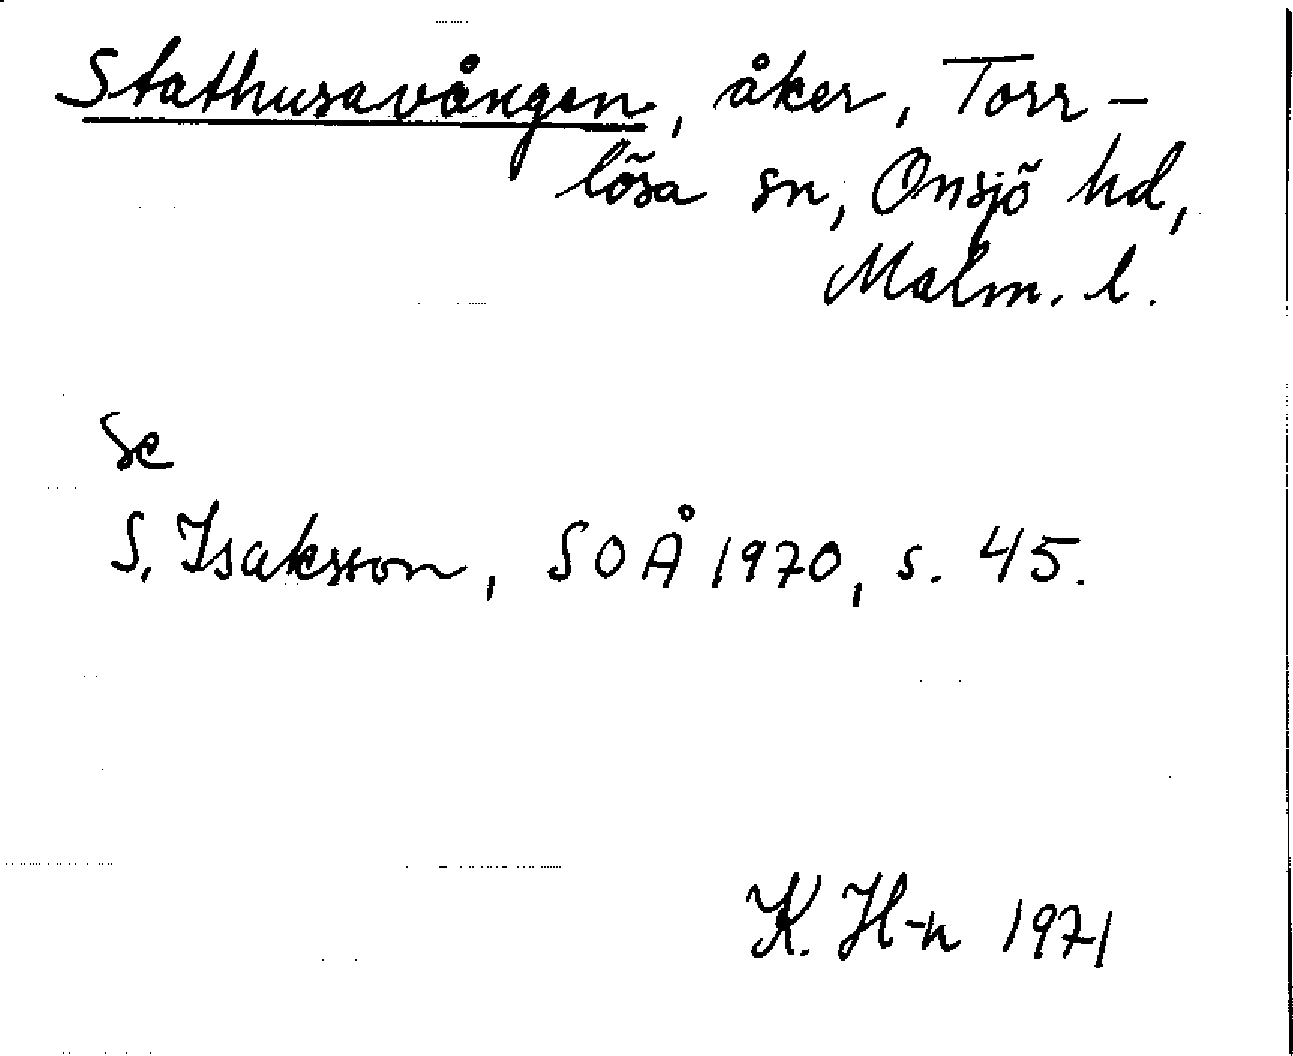 Stathusavången, åker, Torr-
lösa sn, Onsjö hd,
Malm. l.
Se
S. Isaksson, SOÅ 1970, s. 45.
K. H-n 1971